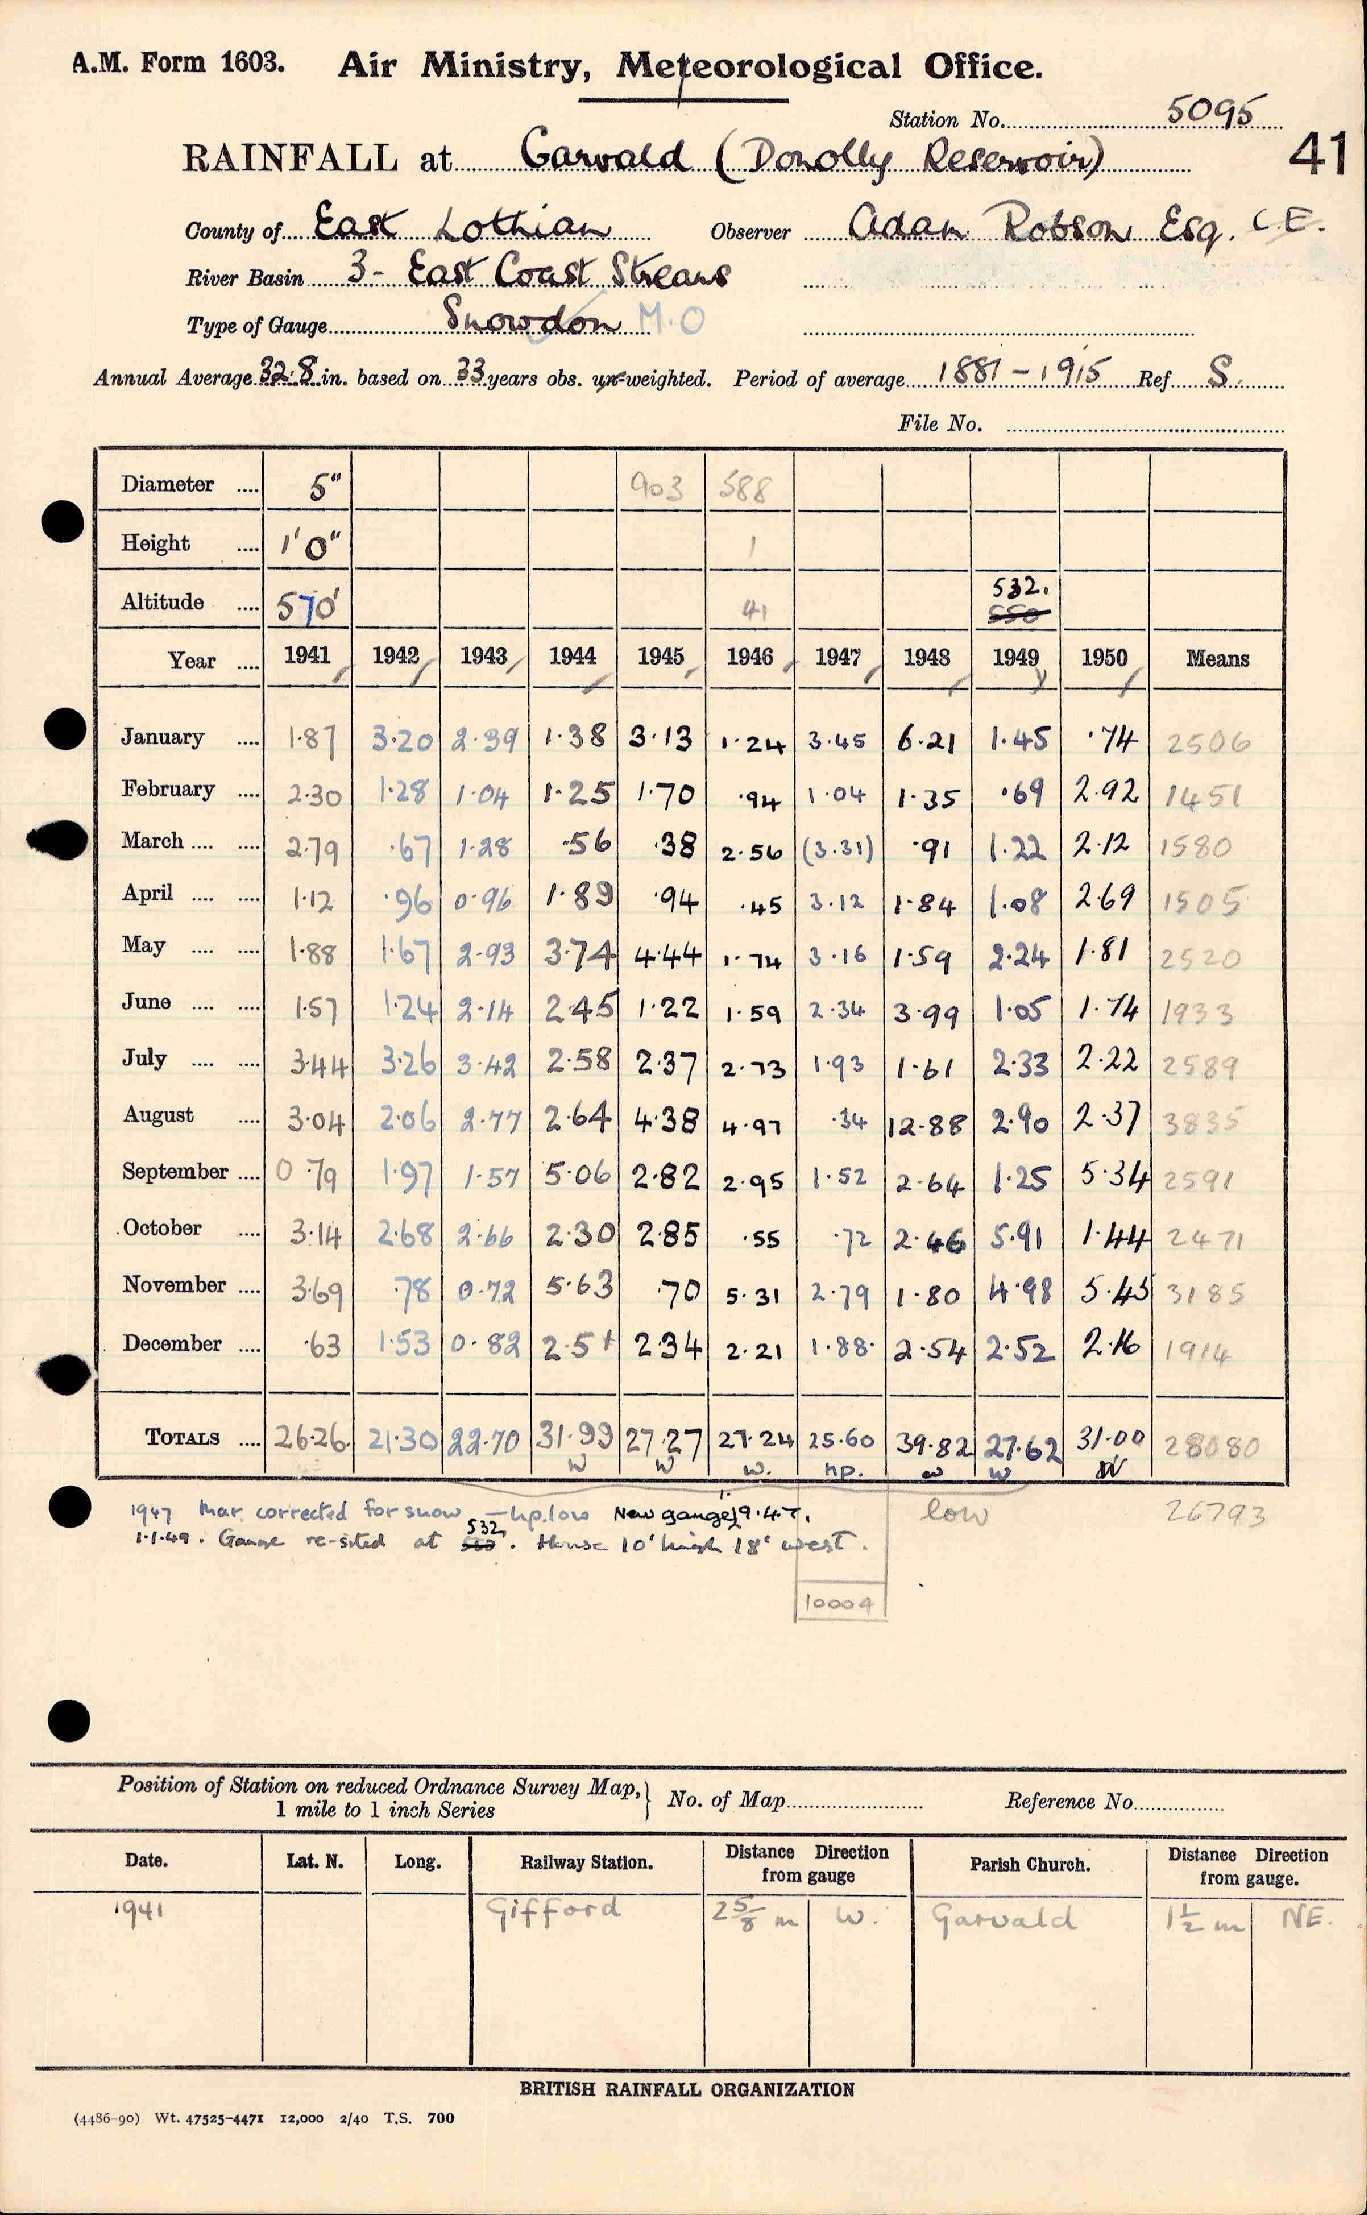 A.M. Form 1603. Air Ministry, Meteorological Office.
Station No. 5095
41
RAINFALL at Garvald (Donolly Reservoir)
County of East Lothian Observer Adam Robson Esq. C.E.
River Basin 3- East Coast Streams
Type of Gauge Snowdon M.O
Annual Average 32.8 in. based on 33 years obs. un-weighted. Period of average 1881-1915 Ref. S.
File No.
Diameter .... 5" 903 588
Height .... 1'0" 1
532.
Altitude .... 570' 41 550
Year .... 1941 1942 1943 1944 1945 1946 1947 1948 1949 1950 Means
January .... 1.87 3.20 2.39 1.38 3.13 1.24 3.45 6.21 1.45 .74 2506
February .... 2.30 1.28 1.04 1.25 1.70 .94 1.04 1.35 .69 2.92 1451
March .... .... 2.79 .67 1.28 .56 .38 2.56 (3.31) .91 1.22 2.12 1580
April .... .... 1.12 .96 0.96 1.89 .94 .45 3.12 1.84 1.08 2.69 1505
May .... .... 1.88 1.67 2.93 3.74 4.44 1.74 3.16 1.59 2.24 1.81 2520
June .... .... 1.57 1.24 2.14 2.45 1.22 1.59 2.34 3.99 1.05 1.74 1933
July .... .... 3.44 3.26 3.42 2.58 2.37 2.73 1.93 1.61 2.33 2.22 2589
August .... 3.04 2.06 2.77 2.64 4.38 4.97 .34 12.88 2.90 2.37 3835
September .... 0.79 1.97 1.57 5.06 2.82 2.95 1.52 2.64 1.25 5.34 2591
October .... 3.14 2.68 2.66 2.30 2.85 .55 .72 2.46 5.91 1.44 2471
November .... 3.69 .78 0.72 5.63 .70 5.31 2.79 1.80 4.98 5.45 3185
December .... .63 1.53 0.82 2.51 2.34 2.21 1.88 2.54 2.52 2.16 1914
TOTALS .... 26.26 21.30 22.70 31.99 27.27 27.24 25.60 39.82 27.62 31.00 28080
w w w. hp. w w w
1947 Mar. corrected for snow - hp. low New gauge 1.9.47. low 26793
1.1.49. Gauge re-sited at 532 550. House 10' high 18' west.
10004
Position of Station on reduced Ordnance Survey Map, 1 mile to 1 inch Series } No. of Map Reference No.
Date. Lat. N. Long. Railway Station. Distance Direction from gauge Parish Church. Distance Direction from gauge.
1941 Gifford 2 5/8 m W. Garvald 1 1/2 m NE.
BRITISH RAINFALL ORGANIZATION
(4486-90) Wt. 47525-4471 12,000 2/40 T.S. 700